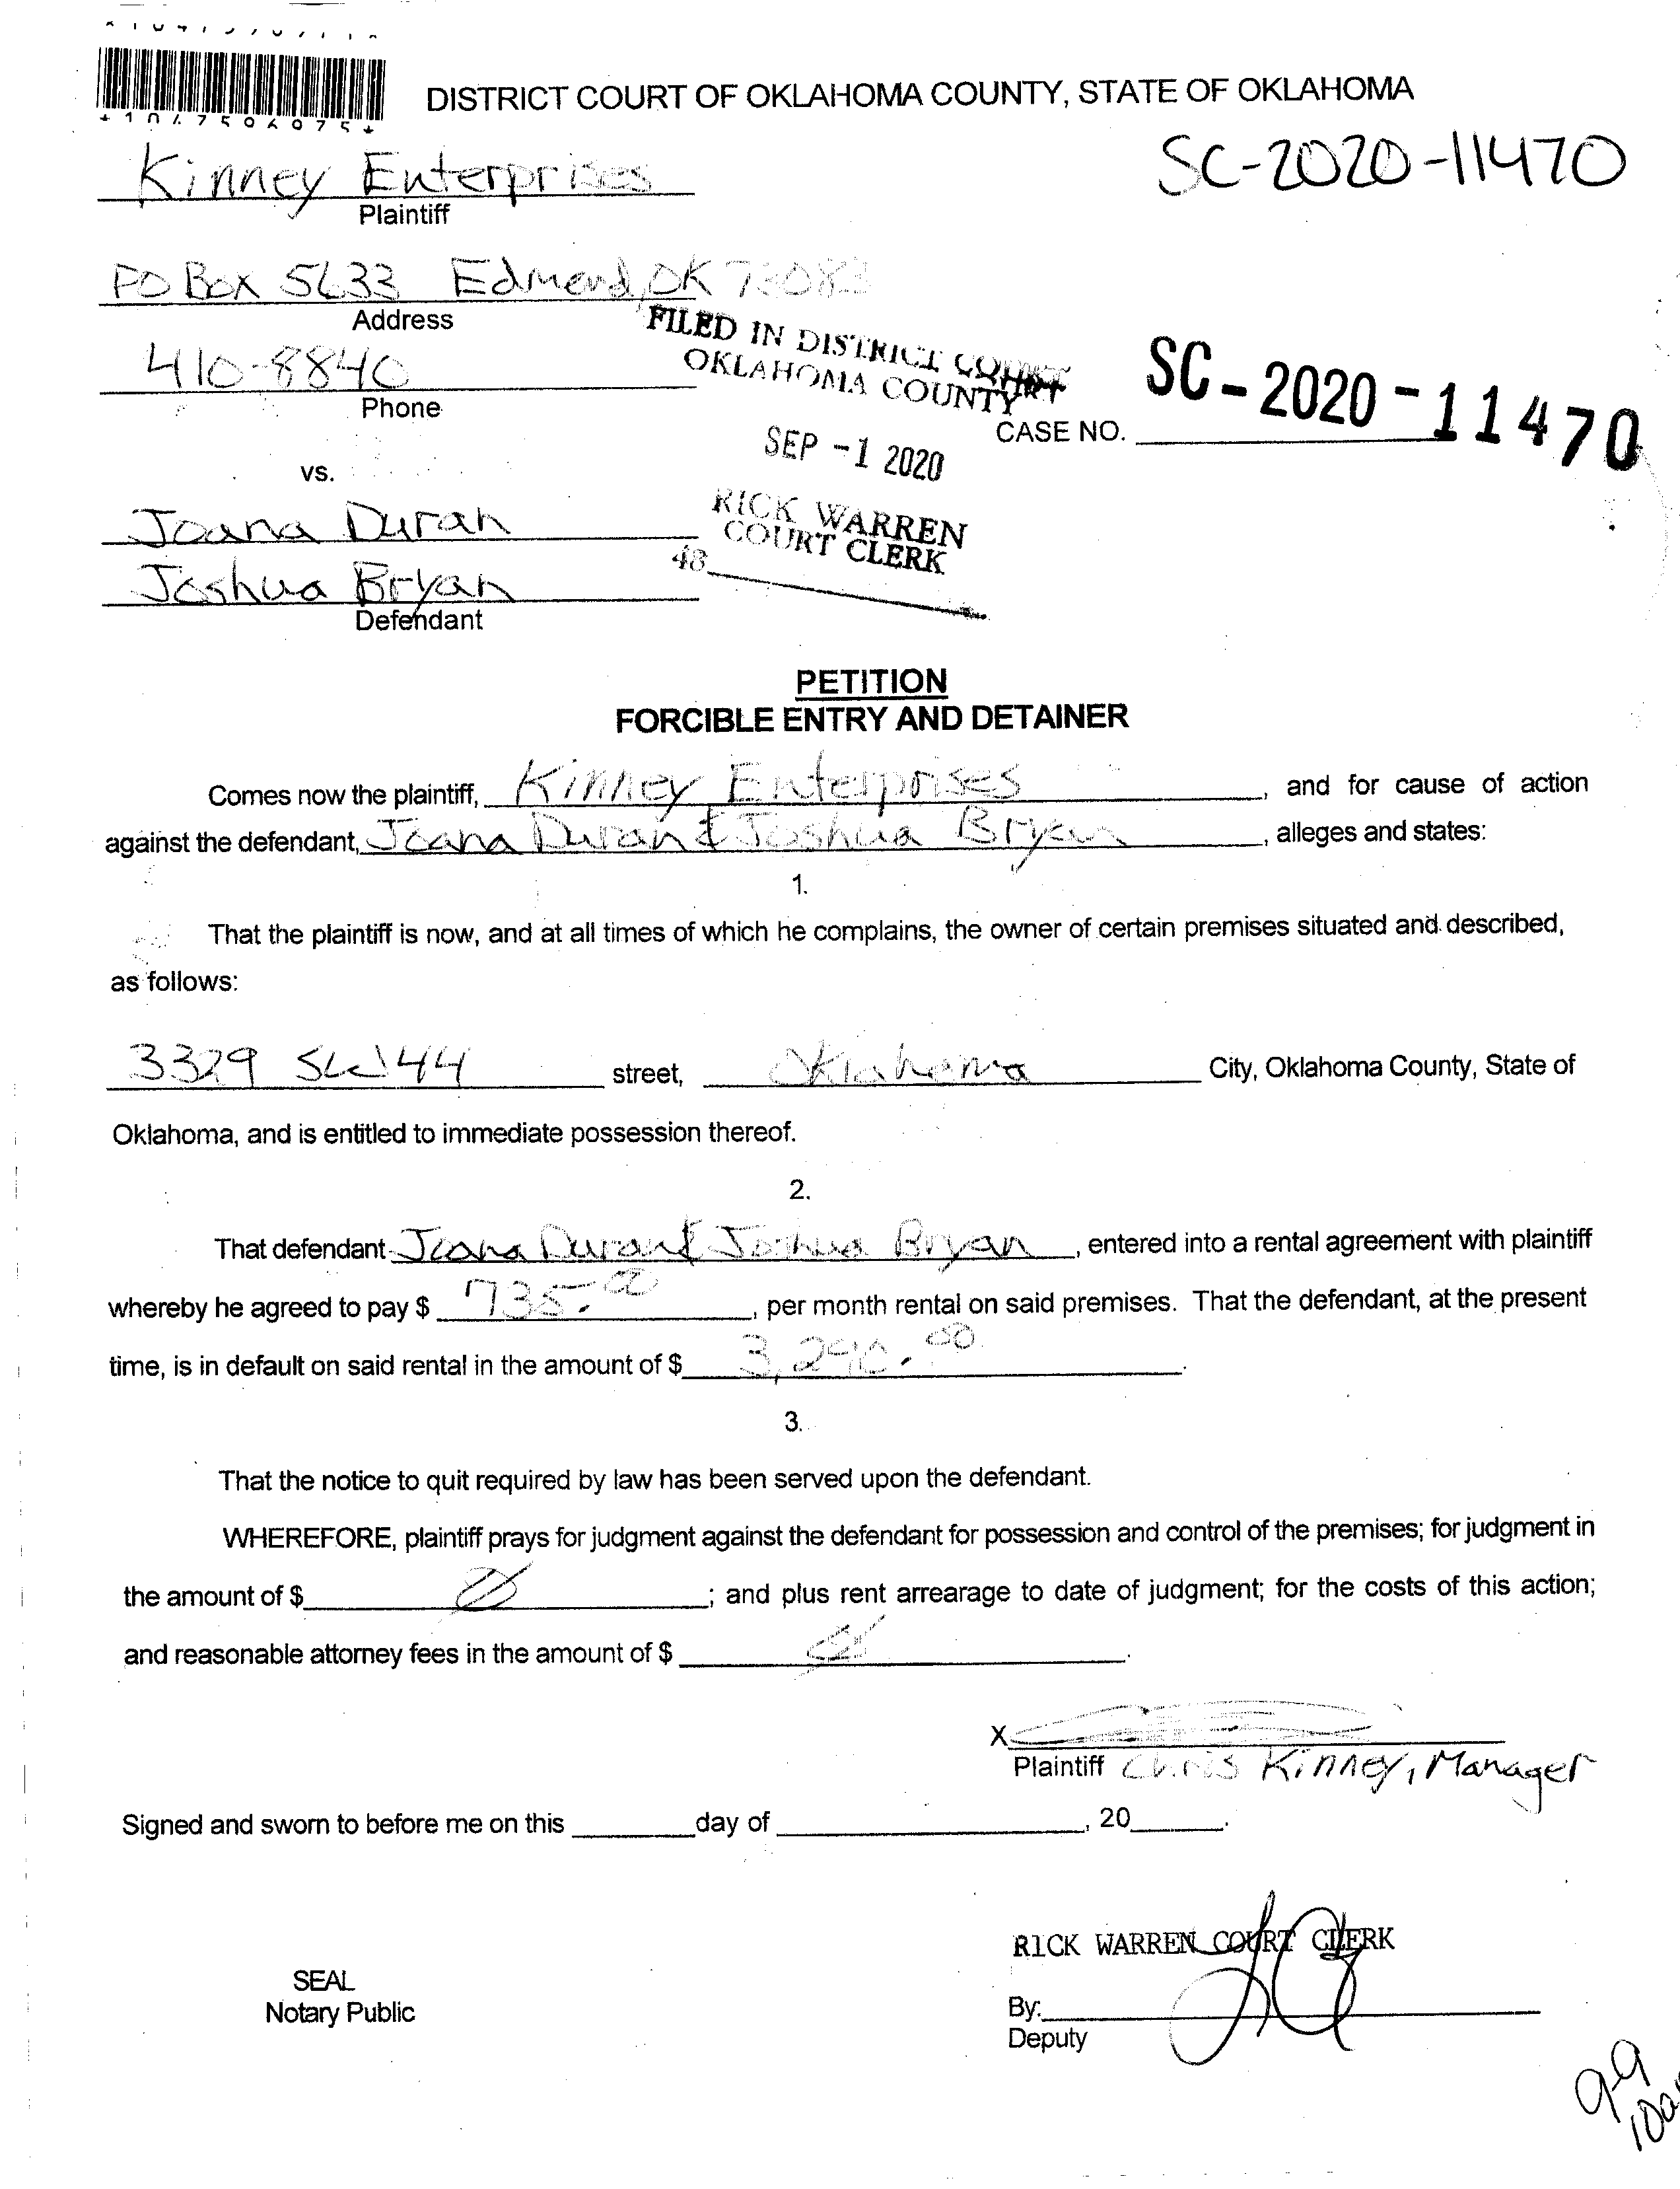 *1047506075*
DISTRICT COURT OF OKLAHOMA COUNTY, STATE OF OKLAHOMA
Kinney Enterprises
Plaintiff
SC-2020-11470
PO Box 5633 Edmond, OK 73083
Address
410-8840
Phone
FILED IN DISTRICT COURT
OKLAHOMA COUNTY
SEP -1 2020
RICK WARREN
COURT CLERK
48
CASE NO. SC-2020-11470
vs.
Joana Duran
Joshua Bryan
Defendant
PETITION
FORCIBLE ENTRY AND DETAINER
Comes now the plaintiff, Kinney Enterprises, and for cause of action
against the defendant, Joana Duran & Joshua Bryan, alleges and states:
1.
That the plaintiff is now, and at all times of which he complains, the owner of certain premises situated and described,
as follows:
3329 SW 44 street, Oklahoma City, Oklahoma County, State of
Oklahoma, and is entitled to immediate possession thereof.
2.
That defendant Joana Duran & Joshua Bryan, entered into a rental agreement with plaintiff
whereby he agreed to pay $ 735.00, per month rental on said premises. That the defendant, at the present
time, is in default on said rental in the amount of $ 3,290.00.
3.
That the notice to quit required by law has been served upon the defendant.
WHEREFORE, plaintiff prays for judgment against the defendant for possession and control of the premises; for judgment in
the amount of $ Ø; and plus rent arrearage to date of judgment; for the costs of this action;
and reasonable attorney fees in the amount of $ Ø.
X
Plaintiff Chris Kinney, Manager
Signed and sworn to before me on this day of , 20 .
RICK WARREN COURT CLERK
SEAL
Notary Public
By:
Deputy
99